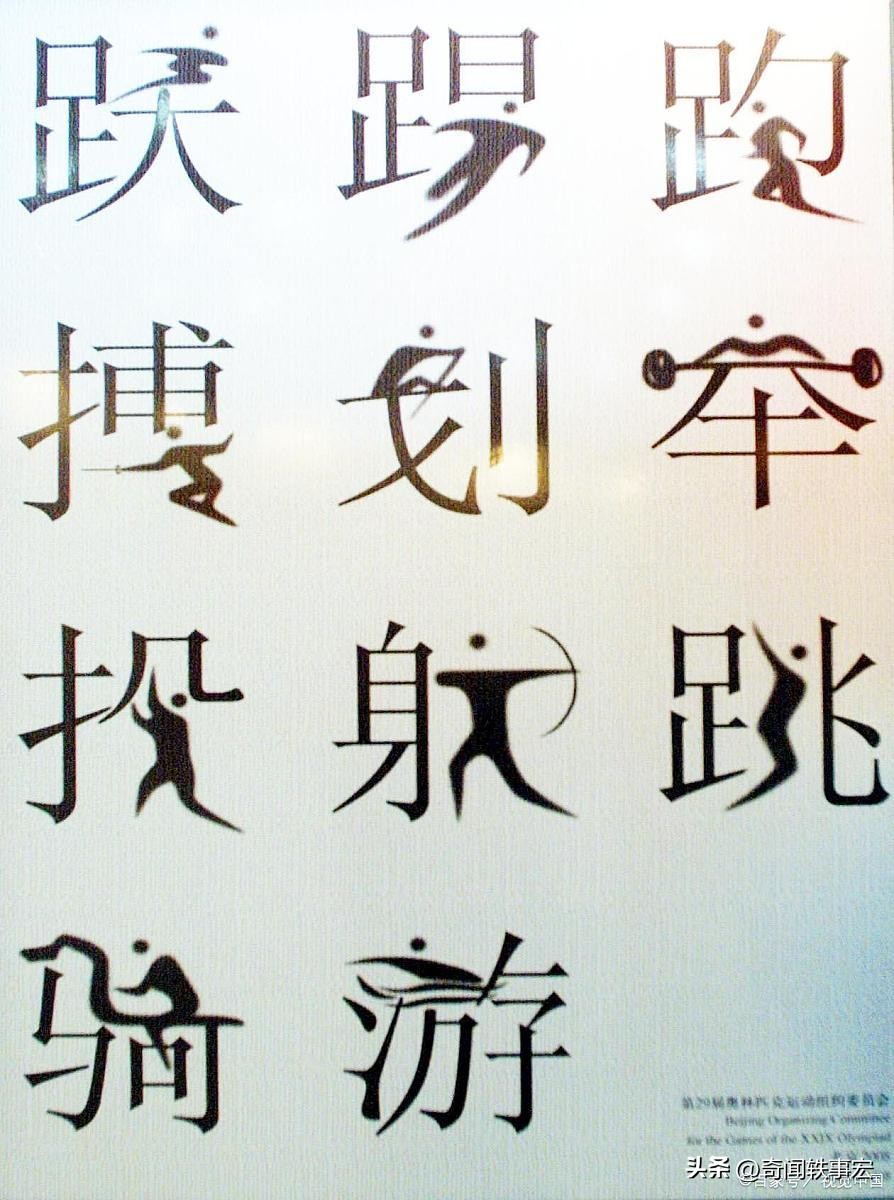 跃 踢 跑
搏 划 举
投 射 跳
骑 游
第29届奥林匹克运动组织委员会
Beijing Organizing Committee
for the Games of the XXIX Olympiad
北京 2008
头条 @奇闻轶事宏
@百家号/视觉中国